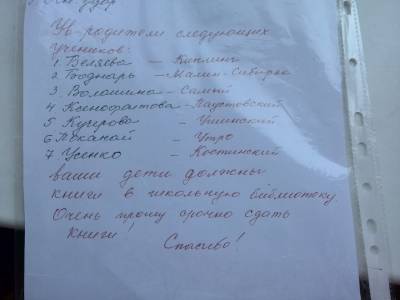 Ув. родители следующих
учеников:
1. Беляева — Киплинг
2. Боднарь — Мамин-Сибиряк
3 Волошина — Самый
4 Ксенофонтова - Паустовский
5 Кучерова — Ушинский
6 — Утро
7. Усенко — Костинский
ваши дети должны
книги в школьную библиотеку.
Очень прошу срочно сдать
книги!
Спасибо!